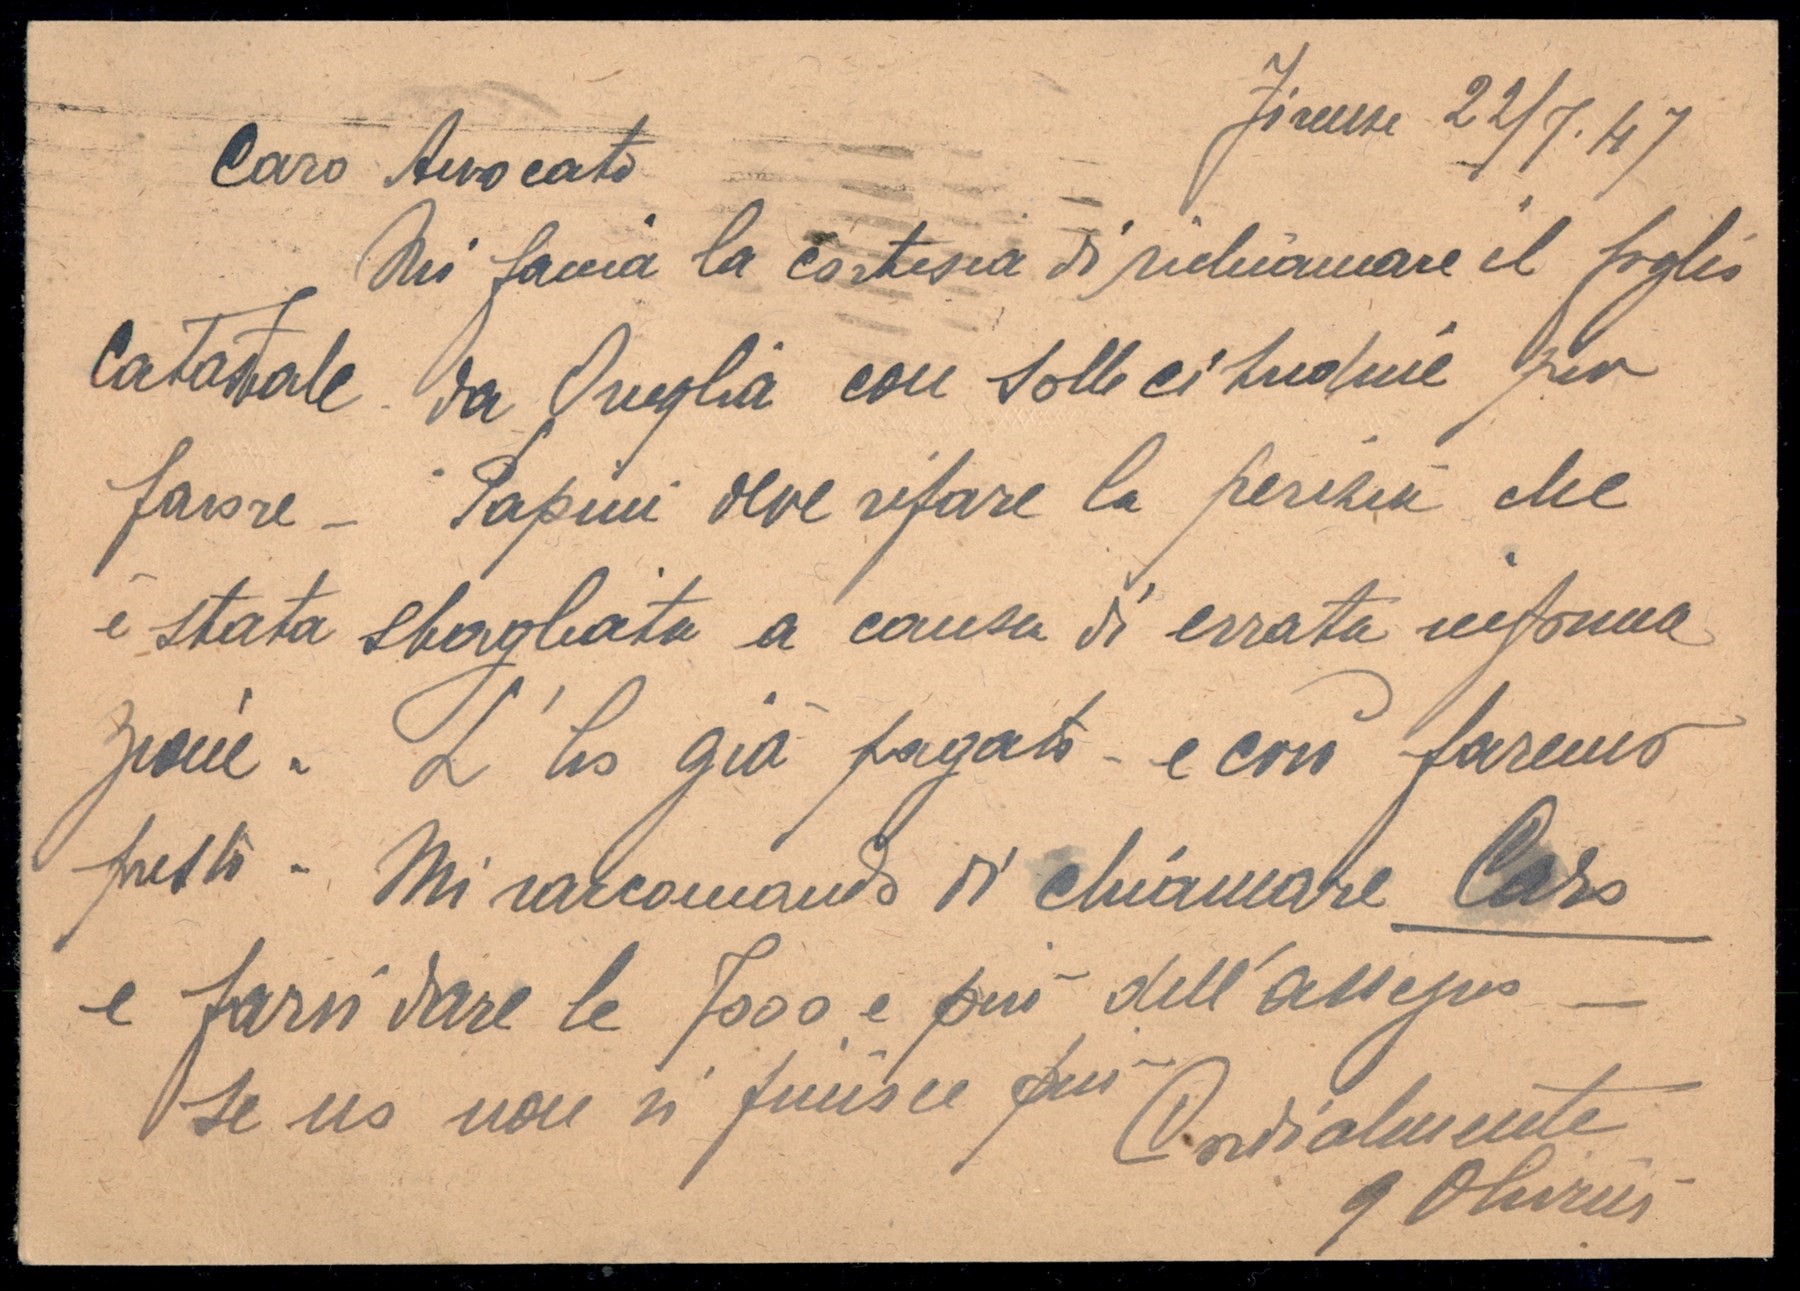 Firenze 22/7.47
Caro Avvocato
Mi faccia la cortesia di richiamare il foglio
catastale da Oneglia con sollecitudine per
favore - Papini deve rifare la perizia che
è stata sbagliata a causa di errata informa
zione. L'ho già pagato - e così faremo
presto - Mi raccomando di chiamare Caro
e farsi dare le 7000 e più dell'assegno -
se no non si finisce più Cordialmente